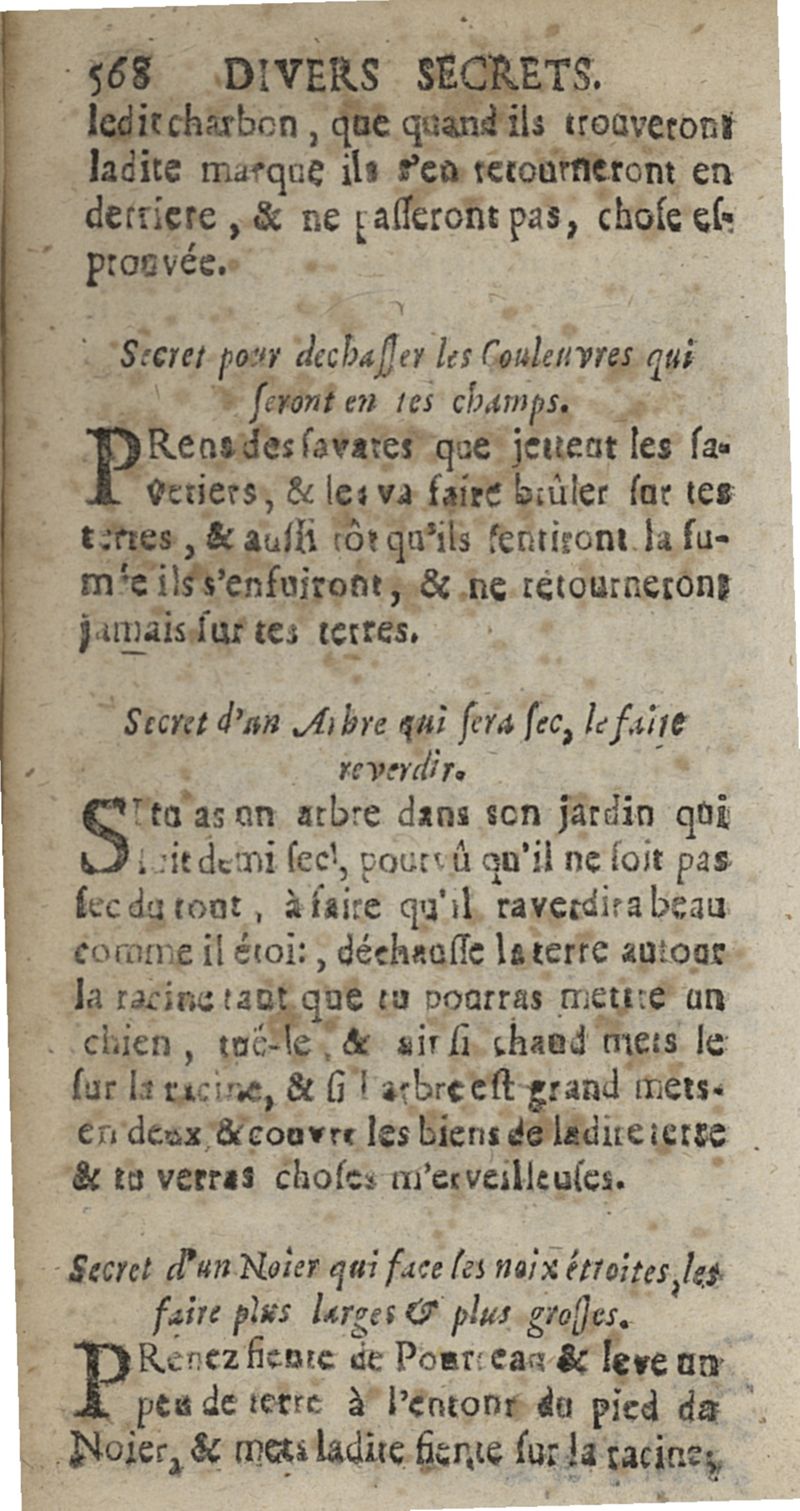 568 DIVERS SECRETS.
ledit charbon, que quand ils trouveront
ladite marque ils s'en retourneront en
derriere, & ne passeront pas, chose es-
prouvée.
Secret pour dechaſſer les Couleuvres qui
ſeront en tes champs.
PRens des ſavates que jettent les ſa-
vetiers, & les va faire brûler ſur tes
terres, & auſſi tôt qu'ils ſentiront la fu-
mée ils s'enfuiront, & ne retourneront
jamais ſur tes terres.
Secret d'un Arbre qui ſera ſec, le faire
reverdir.
SI tu as un arbre dans son jardin qui
ſoit demi ſec, pourvû qu'il ne ſoit pas
ſec du tout, à faire qu'il raverdira beau
comme il étoit, déchauſſe la terre autour
la racine tant que tu pourras mettre un
chien, tuë-le, & ainſi chaud mets le
ſur la racine, & ſi l'arbre eſt grand mets-
en deux, & couvre les biens de ladite terre
& tu verras choſes m'erveilleuſes.
Secret d'un Noier qui face les noix étroites, les
faire plus larges & plus groſſes.
PRenez fiente de Pourceau & leve un
peu de terre à l'entour du pied du
Noier, & mets ladite fiente ſur la racine,